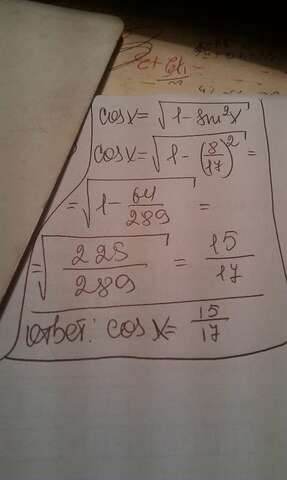 cosx=√1-sin²x
cosx=√1-(8/17)²=
=√1-64/289=
=√225/289=15/17
ответ: cosx=15/17